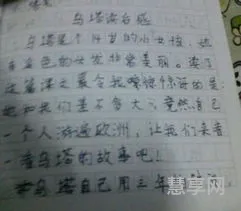 乌塔读后感
乌塔是个14岁的小女孩,她
有金色的头发非常美丽。读了
这篇课文最令我惊讶的是:
她和我们差不多大,竟然自己
一个人游遍欧洲,让我们来看
一看乌塔的故事吧!
乌塔自己用三年
慧享网